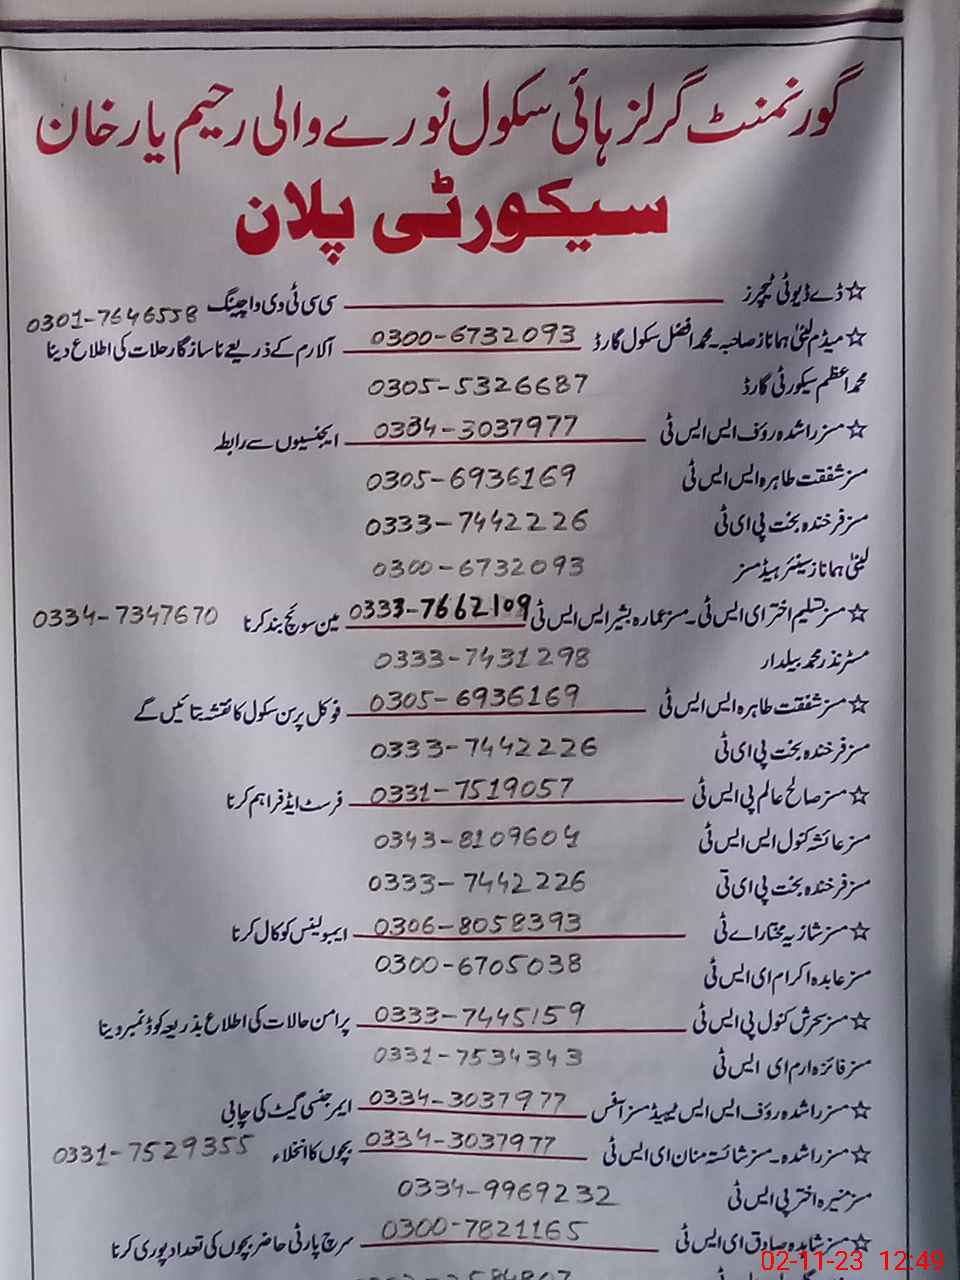 گورنمنٹ گرلز ہائی سکول نورے والی رحیم یار خان
سیکورٹی پلان
☆ ڈے ڈیوٹی ٹیچرز سی سی ٹی وی واچنگ 0301-7646558
☆ میڈم لبنیٰ ہما ناز صاحبہ۔ محمد افضل سکول گارڈ 0300-6732093 آلارم کے ذریعے ناسازگار حلات کی اطلاع دینا
محمد اعظم سیکورٹی گارڈ 0305-5326687
☆ مسز راشدہ روٗف ایس ایس ٹی 0334-3037977 ایجنسیوں سے رابطہ
مسز شفقت طاہرہ ایس ایس ٹی 0305-6936169
مسز فرخندہ بخت پی ای ٹی 0333-7442226
لبنیٰ ہما ناز سینئر ہیڈ مسز 0300-6732093
☆ مسز تسلیم اختر ای ایس ٹی۔ مسز عمارہ بشیر ایس ایس ٹی 0333-7662109 مین سوئچ بند کرنا 0334-7347670
مسٹر نذر محمد بیلدار 0333-7431298
☆ مسز شفقت طاہرہ ایس ایس ٹی 0305-6936169 فوکل پرسن سکول کا نقشہ بتائیں گے
مسز فرخندہ بخت پی ای ٹی 0333-7442226
☆ مسز صالح عالم پی ایس ٹی 0331-7519057 فرسٹ ایڈ فراہم کرنا
مسز عائشہ کنول ایس ایس ٹی 0343-8109604
مسز فرخندہ بخت پی ای ٹی 0333-7442226
☆ مسز شازیہ مختار اے ٹی 0306-8058393 ایمبولینس کو کال کرنا
مسز عابدہ اکرام ای ایس ٹی 0300-6705038
☆ مسز سحرش کنول پی ایس ٹی 0333-7445159 پرامن حالات کی اطلاع بذریعہ کوڈ نمبر دینا
مسز فائزہ ارم ای ایس ٹی 0331-7534343
☆ مسز راشدہ روٗف ایس ایس ٹی ہیڈ مسز آفس 0334-3037977 ایمرجنسی گیٹ کی چابی
☆ مسز راشدہ۔ مسز شائستہ منان ای ایس ٹی 0334-3037977 بچوں کا انخلاء 0331-7529355
مسز منیرہ اختر پی ایس ٹی 0334-9969232
☆ مسز شاہدہ صادق ای ایس ٹی 0300-7821165 سرچ پارٹی حاضر بچوں کی تعداد پوری کرنا
02-11-23 12:49